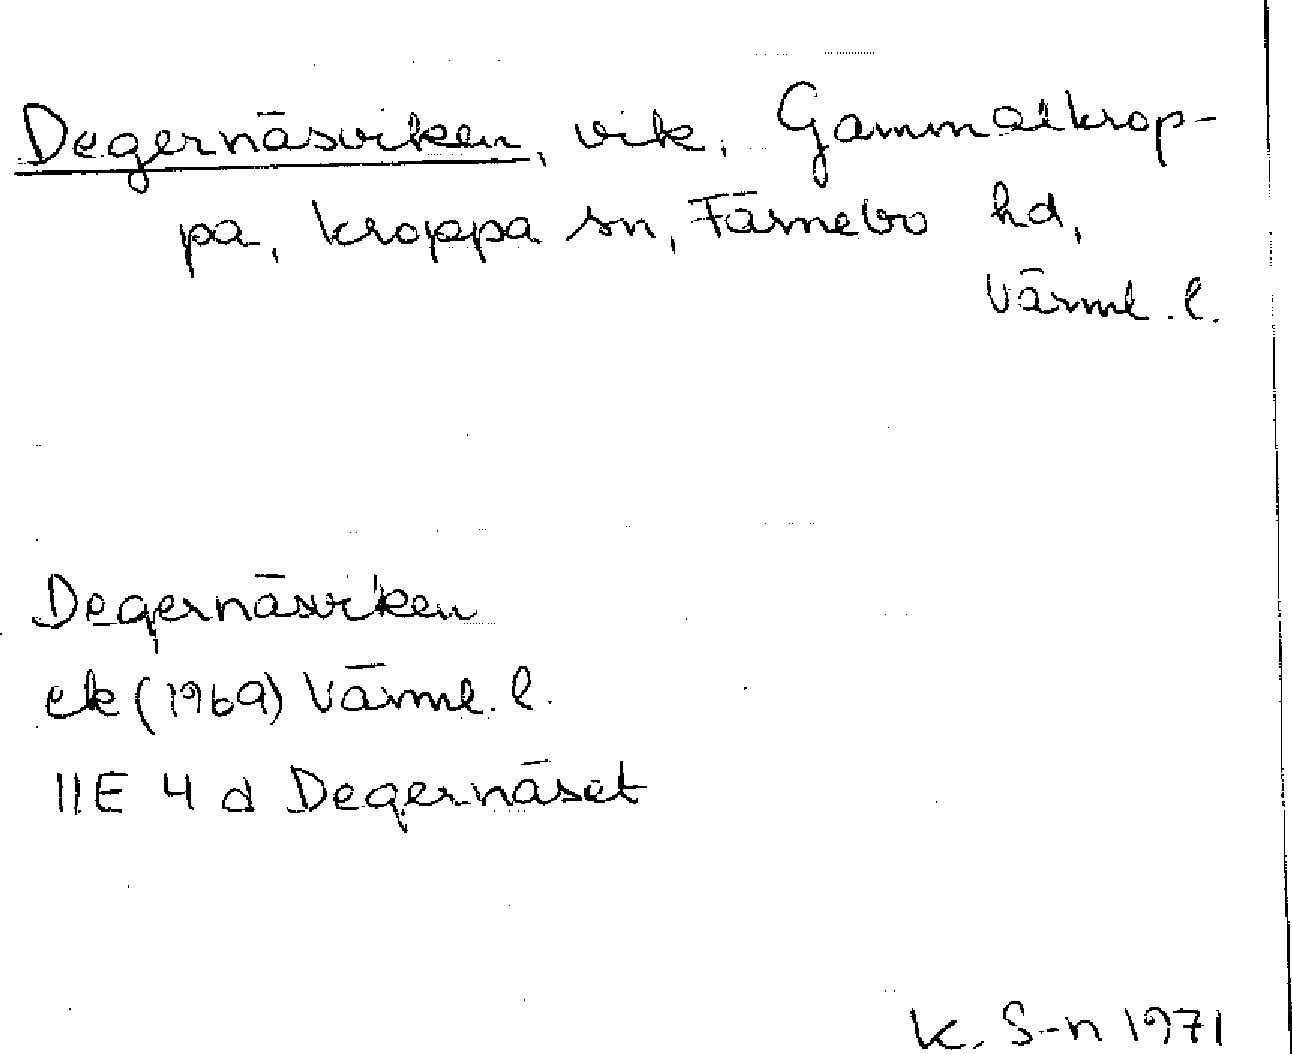 Degernäsviken, vik, Gammalkrop-
pa, Kroppa sn, Färnebo hd,
Värml. l.
Degernäsviken
ek (1969) Värml. l.
11E 4 d Degernäset
K. S-n 1971